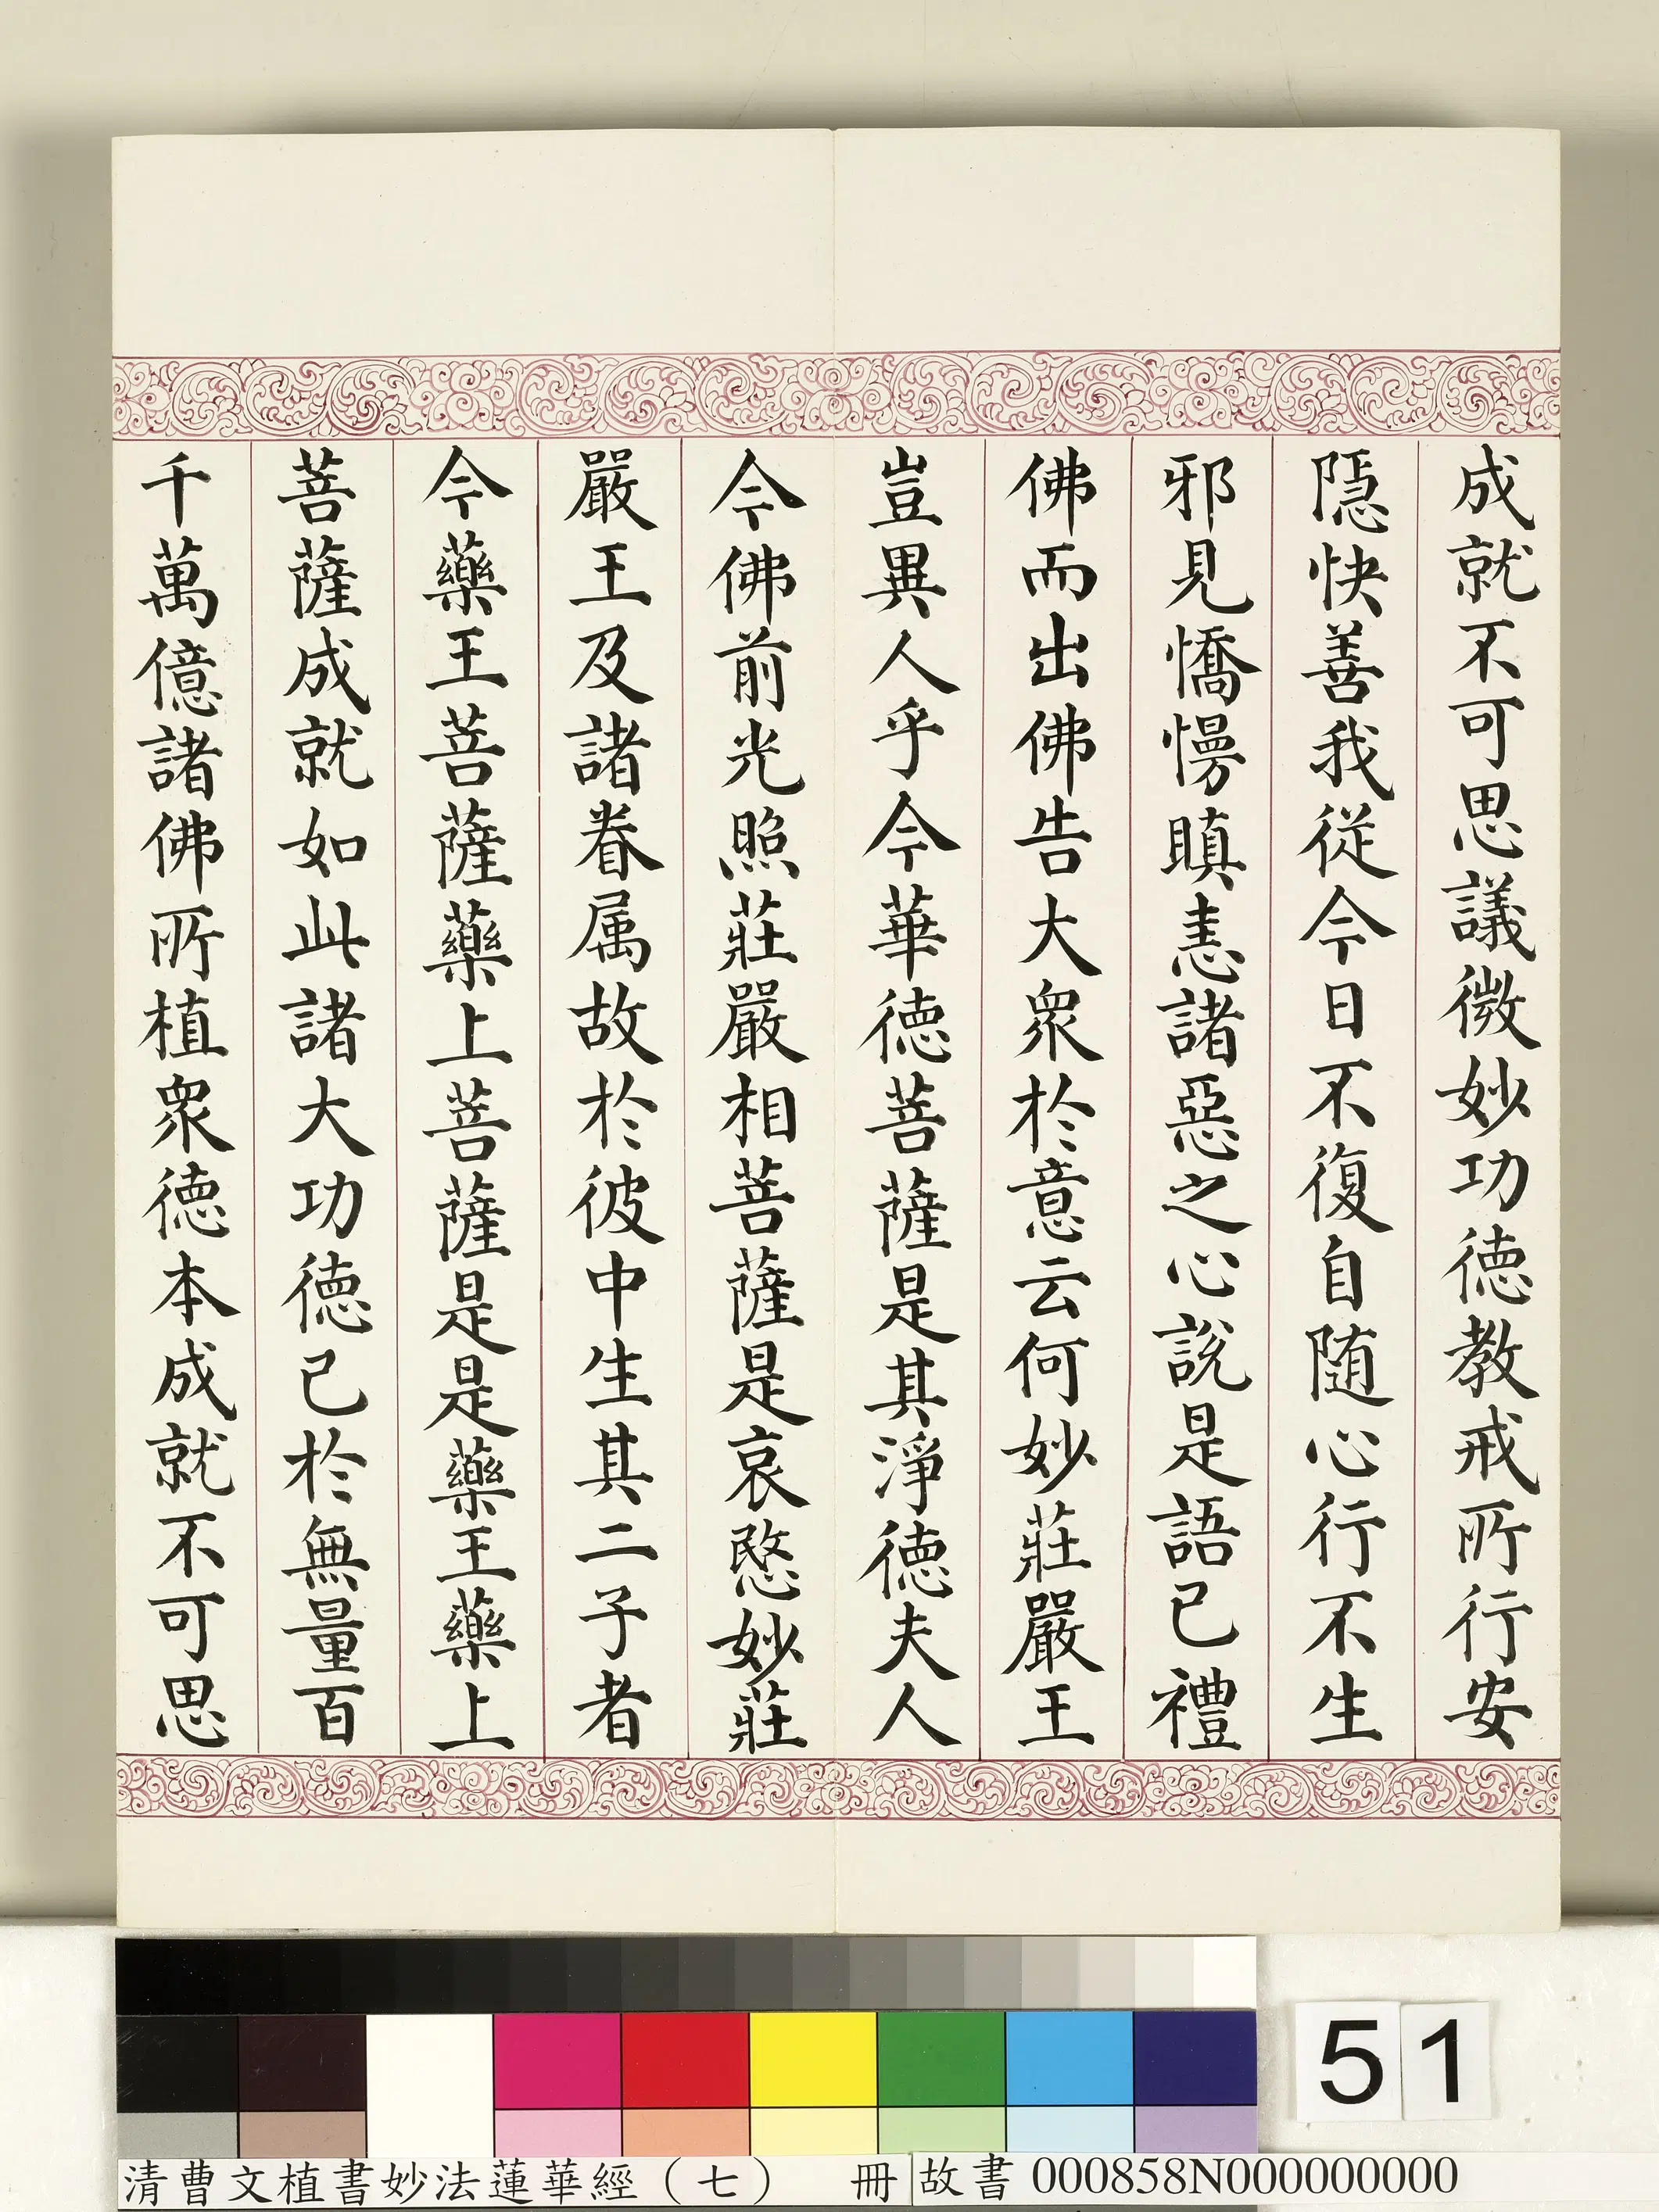 成就不可思議微妙功德教戒所行安
隱快善我從今日不復自隨心行不生
邪見憍慢瞋恚諸惡之心說是語已禮
佛而出佛告大眾於意云何妙莊嚴王
豈異人乎今華德菩薩是其淨德夫人
今佛前光照莊嚴相菩薩是哀愍妙莊
嚴王及諸眷属故於彼中生其二子者
今藥王菩薩藥上菩薩是是藥王藥上
菩薩成就如此諸大功德已於無量百
千萬億諸佛所植眾德本成就不可思
51
清曹文植書妙法蓮華經（七） 冊 故書 000858N000000000